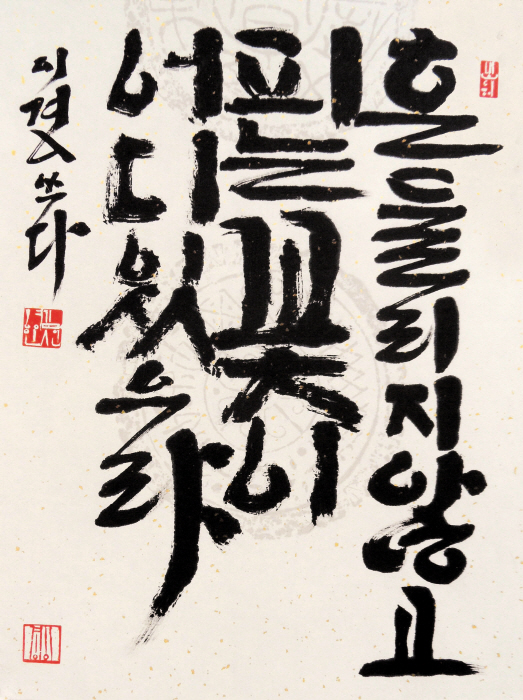 흔들리지않고
피는꽃이
어디있으랴
쓰다